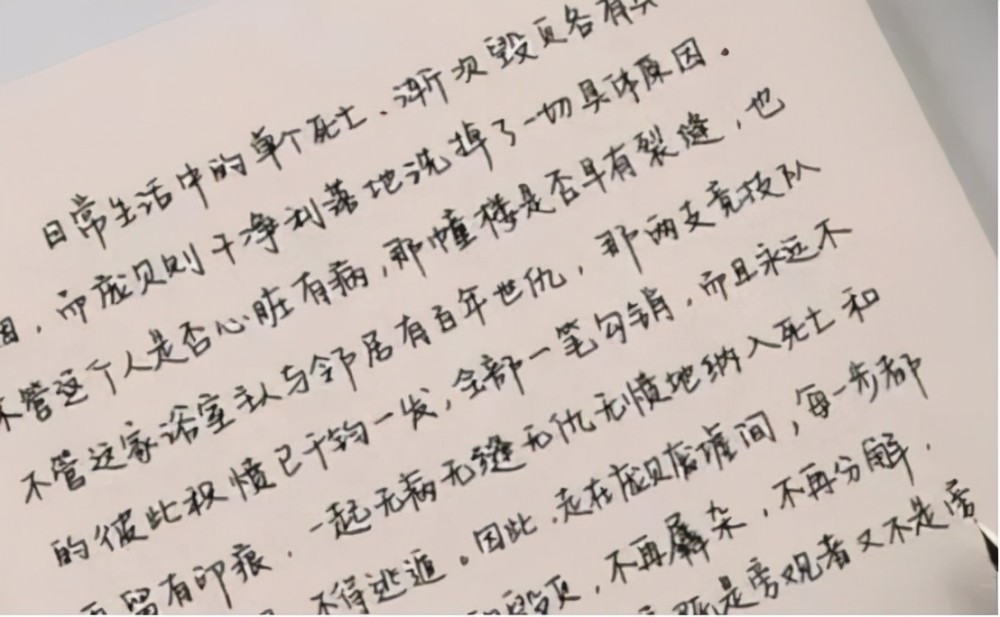 日常生活中的单个死亡、渐次毁灭各有
因，而庞贝则干净利落地洗掉了一切具体原因。
不管这个人是否心脏有病，那幢楼是否早有裂缝，也
不管这家浴室主人与邻居有百年世仇，那两支竞技队
的彼此积愤已千钧一发，全部一笔勾销，而且永远不
再留有印痕，一起无病无缝无仇无愤地纳入死亡和
不得逃遁。因此，走在庞贝废墟间，每一步都
不再羼杂，不再分解，
是旁观者又不是旁